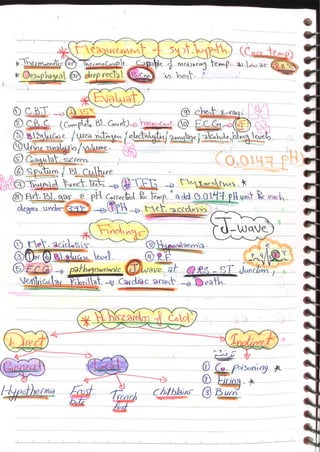 * Measurement of syst. hypoth (Core temp)
* Thermometer or Thermocouple Capable of measuring temp. as low as 28°C
* Oesophageal or deep rectal 15 cm is best.
* Evaluat.
① C.B.T
② C.B.C (Complete Bl. Count)
③ Bl. Glucose / urea nitrogen / electrolytes / amylase / alcohol, drug levels
④ Urine analysis / volume
⑤ Coagulat. screen
⑥ Sputum / Bl. Culture
⑦ Thyroid Funct. tests → TFT → Myxoedema *
⑧ Art. Bl. gases & pH corrected for temp. add 0.0147 pH unit for each
degree under 37°C → pH → Met. acidosis
⑨ chest x-ray
⑩ E.C.G → VF
(0.0147 pH)
J-wave
Findings
① Met. acidosis
② Hyponatraemia
③ ↑ or ↓ Bl. glucose level.
④ R.F
⑤ E.C.G → pathognomonic J wave at QRS-ST Junction,
Ventricular Fibrillat. → Cardiac arrest → Death.
* Hazards of Cold
Direct
Indirect
General
Local
Hypothermia
Frost bite
Trench foot
Chilblains
① Co. poisoning *
② Firing *
③ Burn